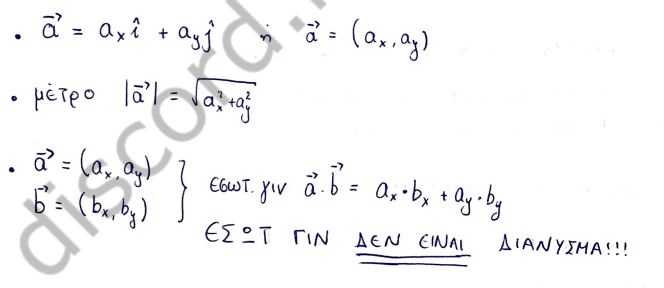 • a⃗ = aₓ î + a_y ĵ ή a⃗ = (aₓ, a_y)
• μέτρο |a⃗| = √(aₓ² + a_y²)
• a⃗ = (aₓ, a_y)
b⃗ = (bₓ, b_y)
} εσωτ. γιν a⃗·b⃗ = aₓ·bₓ + a_y·b_y
ΕΣΩΤ ΓΙΝ ΔΕΝ ΕΙΝΑΙ ΔΙΑΝΥΣΜΑ!!!
discord.